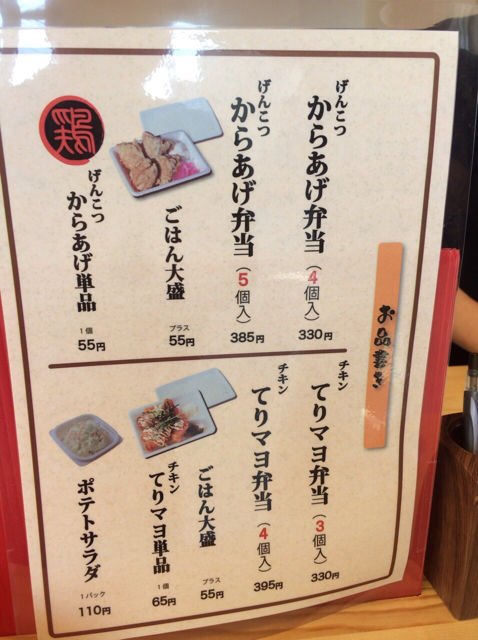 お品書き
げんこつ
からあげ弁当（4個入）
330円
げんこつ
からあげ弁当（5個入）
385円
ごはん大盛
プラス
55円
鶏
げんこつ
からあげ単品
1個
55円
チキン
てりマヨ弁当（3個入）
330円
チキン
てりマヨ弁当（4個入）
395円
ごはん大盛
プラス
55円
チキン
てりマヨ単品
1個
65円
ポテトサラダ
1パック
110円